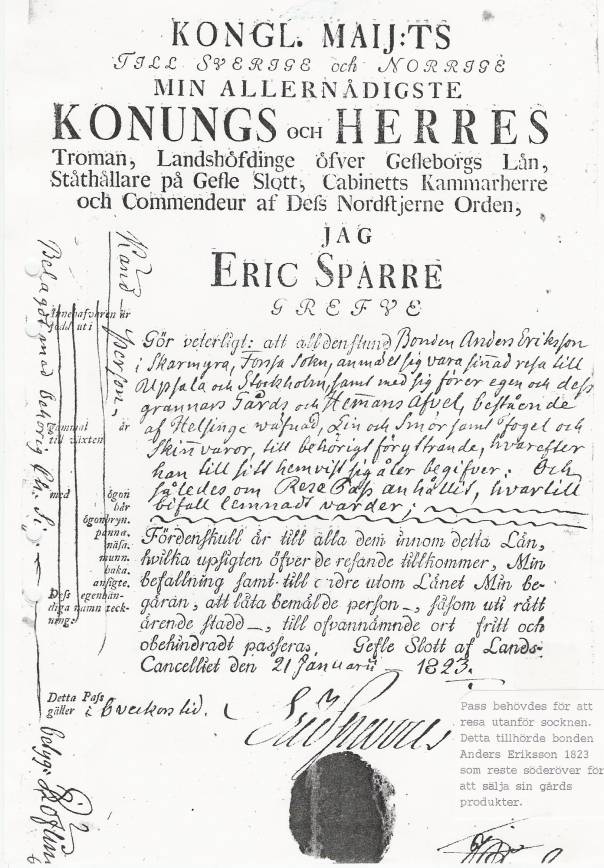 KONGL. MAIJ:TS
TILL SVERIGE och NORRIGE
MIN ALLERNÅDIGSTE
KONUNGS OCH HERRES
Troman, Landshöfdinge öfver Gefleborgs Län,
Ståthållare på Gefle Slott, Cabinetts Kammarherre
och Commendeur af Dess Nordstjerne Orden,
JAG
ERIC SPARRE
GREFVE
Gör veterligt: att alldenstund Bonden Anders Eriksson
i Skarmyra, Forssa Sokn, anmält sig vara sinnad resa till
Upsala och Stockholm, samt med sig förer egen och dess
grannars Gårds och Hemmans Afvel, bestående
af Helsinge wäfnad, Lin och Smör samt Fogel och
Skinvaror, till behörigt föryttrande, hvarefter
han till sitt hemvist sig åter begifver; Och
således om Rese Pass anhållit, hvartill
bifall lemnadt varder;
Fördenskull är till alla dem innom detta Län,
hvilka upsigten öfver de resande tillkommer, Min
befallning samt till dre utom Länet Min be-
gäran, att låta bemälde person, såsom uti rätt
ärende stadd, till ofvannämnde ort fritt och
obehindradt passera. Gefle Slott af Lands-
Cancelliet den 21 Januarii 1823.
Innehafvaren är
född uti
Gammal är
till växten
med ögon
hår
ögonbryn.
panna.
näsa.
munn.
haka.
ansigte.
Dess egenhän-
diga namnteck-
ning:
Känd person,
Belagdt med behörig Ch. Si.
Detta Pass
gäller i 6 veckors tid.
Eric Sparre
betyg:
Pass behövdes för att
resa utanför socknen.
Detta tillhörde bonden
Anders Eriksson 1823
som reste söderöver för
att sälja sin gårds
produkter.